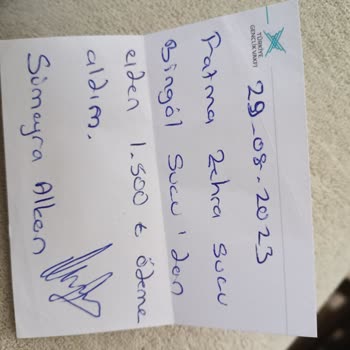 TÜRKİYE
GENÇLİK VAKFI
29-08.2023
Fatma Zehra Sucu
Bingöl Sucu'dan
elden 1.500 ₺ ödeme
aldım.
Sümeyra Alken